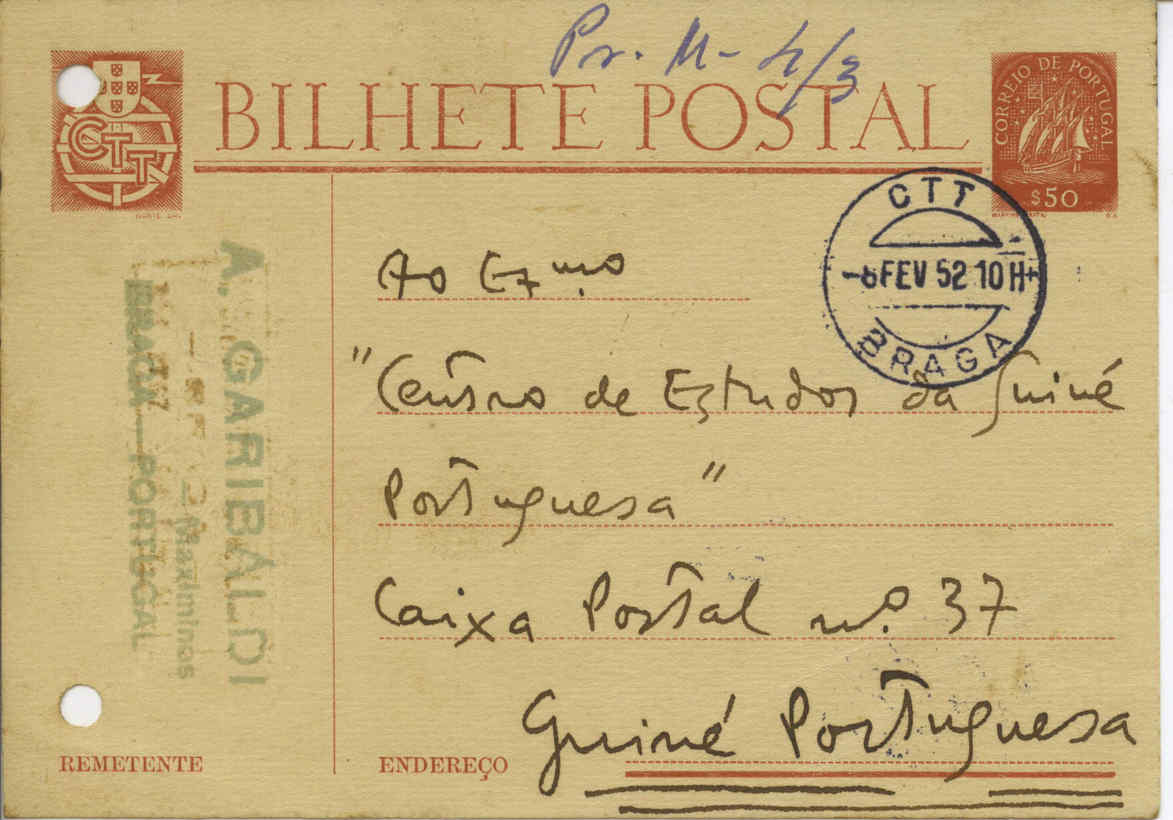 Pr. M- 4/3
CTT
BILHETE POSTAL
CORREIO DE PORTUGAL
$50
CTT
-6 FEV 52 10H+
BRAGA
A. GARIBÁLDI
Maximinos
BRAGA — PORTUGAL
Ao Ex.mo
"Centro de Estudos da Guiné
Portuguesa"
Caixa Postal n.º 37
Guiné Portuguesa
REMETENTE
ENDEREÇO